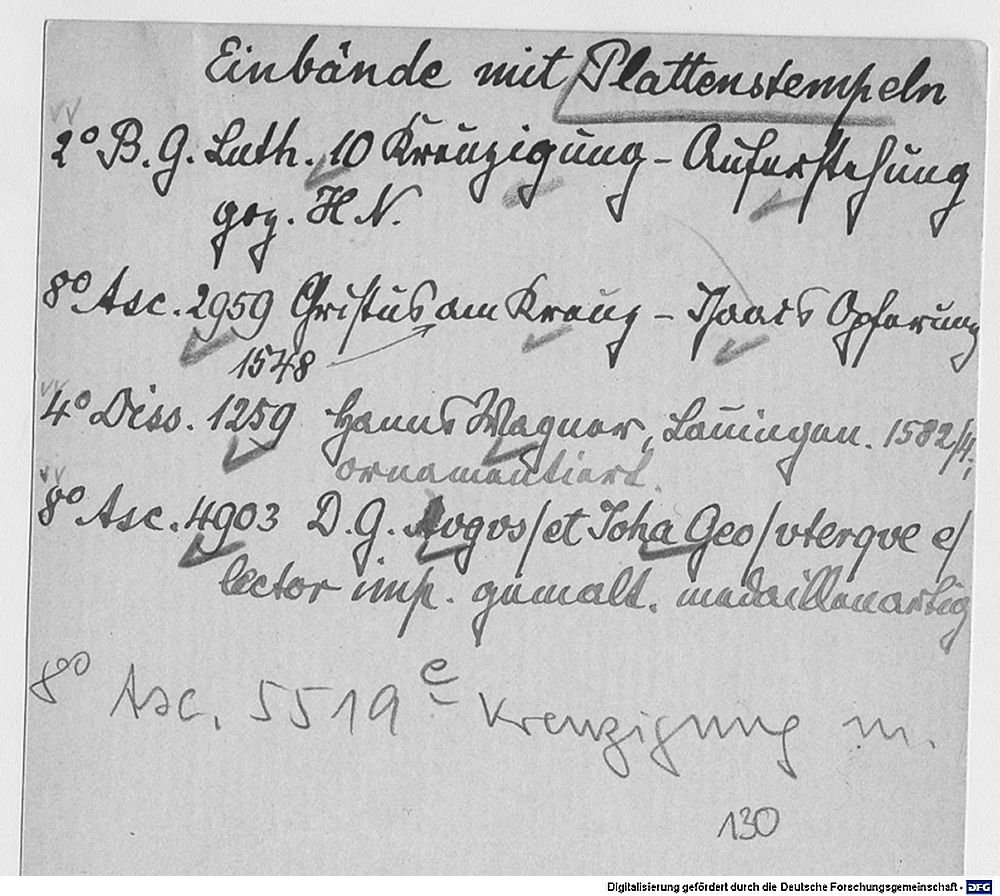 Einbände mit Plattenstempeln
2° B. G. Luth. 10 Kreuzigung – Auferstehung
gez. H N.
8° Asc. 2959 Christus am Kreuz – Isaacs Opferung
1548
4° Diss. 1259 Hanns Wagner, Lauingen. 1582/4;
ornamentiert.
8° Asc. 4903 D. G. Avgvs/et Joha Geo/vterqve e/
lector imp. gemalt. medaillenartig
8° Asc. 5519 e Kreuzigung m.
130
Digitalisierung gefördert durch die Deutsche Forschungsgemeinschaft - DFG